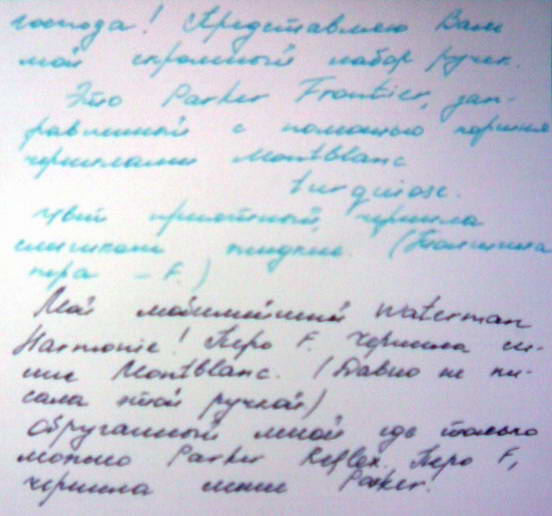 господа! Представляю Вам
мой скромный набор ручек.
Это Parker Frontier, зап-
равленный с помощью поршня
чернилами Montblanc
turquoise.
Цвет приятный, чернила
слишком жидкие. (Толщина
пера – F.)
Мой любимейший Waterman
Harmonie! Перо F. Чернила си-
ние Montblanc. (Давно не пи-
сала этой ручкой)
Обруганный мной где только
можно Parker Reflex. Перо F,
чернила синие Parker.